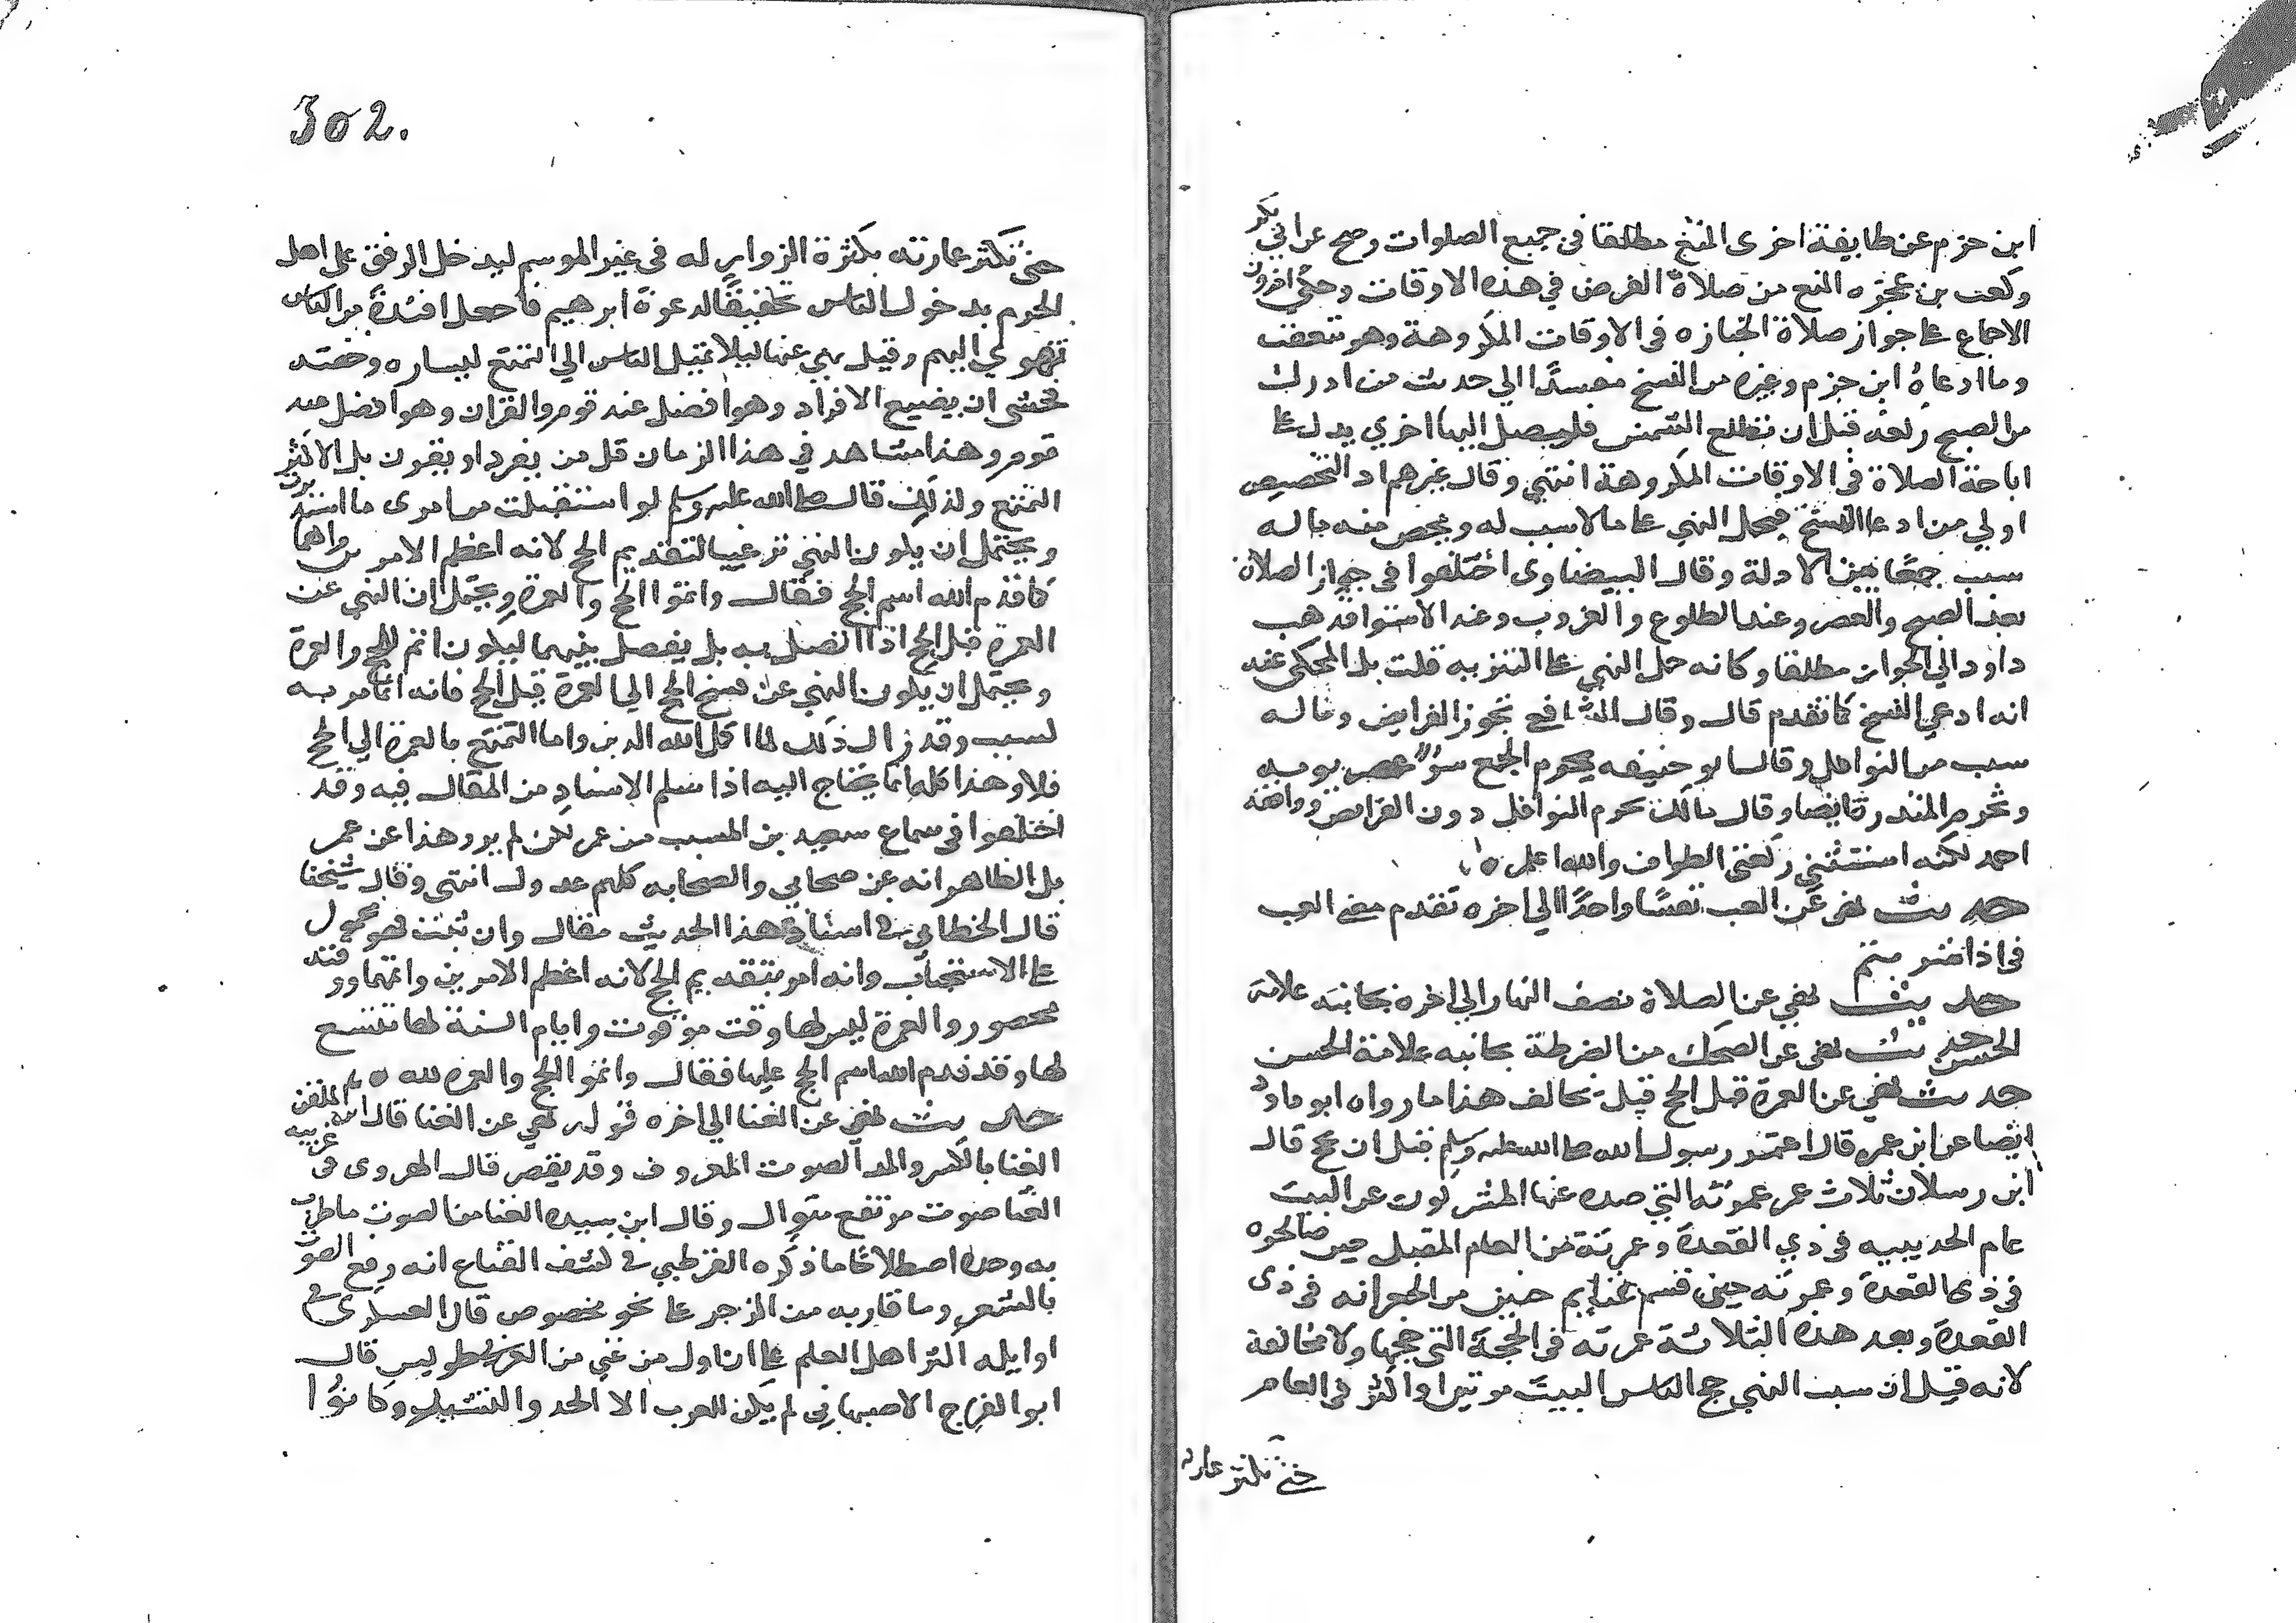 ابن حزم عن طايفة اخرى المنع مطلقا في جميع الصلوات وصح عن ابي بكر
وكعب بن عجره المنع من صلاة الفرض في هذه الاوقات وحكى اخرون
الاجماع على جواز صلاة الجنازه في الاوقات المكروهة وهو متعقب
وما ادعاه ابن حزم وغيره من النسخ مستندا الي حديث من ادرك
من الصبح ركعة قبل ان تطلع الشمس فليصل اليها اخري يدل على
اباحة الصلاة في الاوقات المكروهة انتهى وقال غيرهم ادعا التخصيص
اولي من ادعا النسخ فيحمل النهي على ما لا سبب له ويخص منه ما له
سبب جمعا بين الادلة وقال البيضاوى اختلفوا في جواز الصلاة
بعد الصبح والعصر وعند الطلوع والغروب وعند الاستوا فذهب
داود الي الجواز مطلقا وكانه حمل النهي على التنزيه قلت بل المحكى عنه
انه ادعى النسخ كما تقدم قال وقال الشافعي تجوز الفرايض وما له
سبب من النوافل وقال ابو حنيفه يحرم الجميع سوى عصر يومه
وتحرم المنذورة ايضا وقال مالك تحرم النوافل دون الفرايض ووافقه
احمد لكنه استثنى ركعتي الطواف والله اعلم ه
حديث نهى عن العب نفسا واحدا الي اخره تقدم معنى العب
في اذا شرب
حديث نهي عن الصلاة نصف النهار الي اخره بجانبه علامة
الحسن حديث نهى عن الضحك من الضرطة بجانبه علامة الحسن
حديث نهي عن العمرة قبل الحج قيل يخالف هذا ما رواه ابو داود
ايضا عن ابن عمر قال اعتمر رسول الله صلى الله عليه وسلم قبل ان يحج قال
ابن رسلان ثلاث عمر عمرته التي صده عنها المشركون عن البيت
عام الحديبيه في ذي القعدة وعمرته من العام المقبل حين صالحوه
في ذى القعدة وعمرته حين قسم غنايم حنين من الجعرانه في ذى
القعدة وبعد هذه الثلاثة عمرته في الحجة التي حجها ولا مخالفة
لانه قيل ان سبب النهي حج الناس البيت مرتين او اكثر في العام
حتى تكثر عمارته
302.
حتى تكثر عمارته بكثرة الزوار له في غير الموسم ليدخل الرفق على اهل
الحرم بدخول الناس تحقيقا لدعوة ابرهيم فاجعل افئدة من الناس
تهوي اليهم وقيل نهي عنها ليلا يميل الناس الي التمتع ليساره وخفته
فخشى ان يضيع الافراد وهو افضل عند قوم والقران وهو افضل عند
قوم وهذا مشاهد في هذا الزمان قل من يفرد او يقرن بل الاكثر
التمتع ولذلك قال صلى الله عليه وسلم لو استقبلت من امرى ما استدبرت
ويحتمل ان يكون النهي ترغيبا لتقديم الحج لانه اعظم الامرين واهما
كما قدم الله اسم الحج فقال واتموا الحج والعمرة ويحتمل ان النهي عن
العمرة قبل الحج اذا اتصل به بل يفصل بينهما ليكون اتم للحج والعمرة
ويحتمل ان يكون النهي عن فسخ الحج الي العمرة قبل الحج فانه انما امر به
لسبب وقد زال ذلك لما اكمل الله الدين واما التمتع بالعمرة الي الحج
فلا وهذا كله انما يحتاج اليه اذا سلم الاسناد من المقال فيه وقد
اختلفوا في سماع سعيد بن المسيب من عمر لكن لم يرو هذا عن عمر
بل الظاهر انه عن صحابي والصحابه كلهم عدول انتهى وقال شيخنا
قال الخطابي في اسناد هذا الحديث مقال وان ثبت فهو محمول
على الاستحباب وانه امر بتقديم الحج لانه اعظم الامرين واتمهما ووقته
محصور والعمرة ليس لها وقت موقوت وايام السنة كلها تتسع
لها وقد قدم الله اسم الحج عليها فقال واتموا الحج والعمره لله ه
حديث نهي عن الغنا الي اخره قوله نهي عن الغنا قال ابن الملقن
الغنا بالكسر والمد الصوت المعروف وقد يقصر قال الهروى في غريبيه
الغنا صوت مرتفع متوال وقال ابن سيده الغنا من الصوت ما طرب
به وحده اصطلاحا ما ذكره القرطبي في كشف القناع انه رفع الصوت
بالشعر وما قاربه من الزجر على نحو مخصوص قال العسكرى في
اوايله اكثر اهل العلم على ان اول من غني من العرب طويس قال
ابو الفرج الاصبهاني لم يكن للعرب الا الحدا والنشيد وكانوا